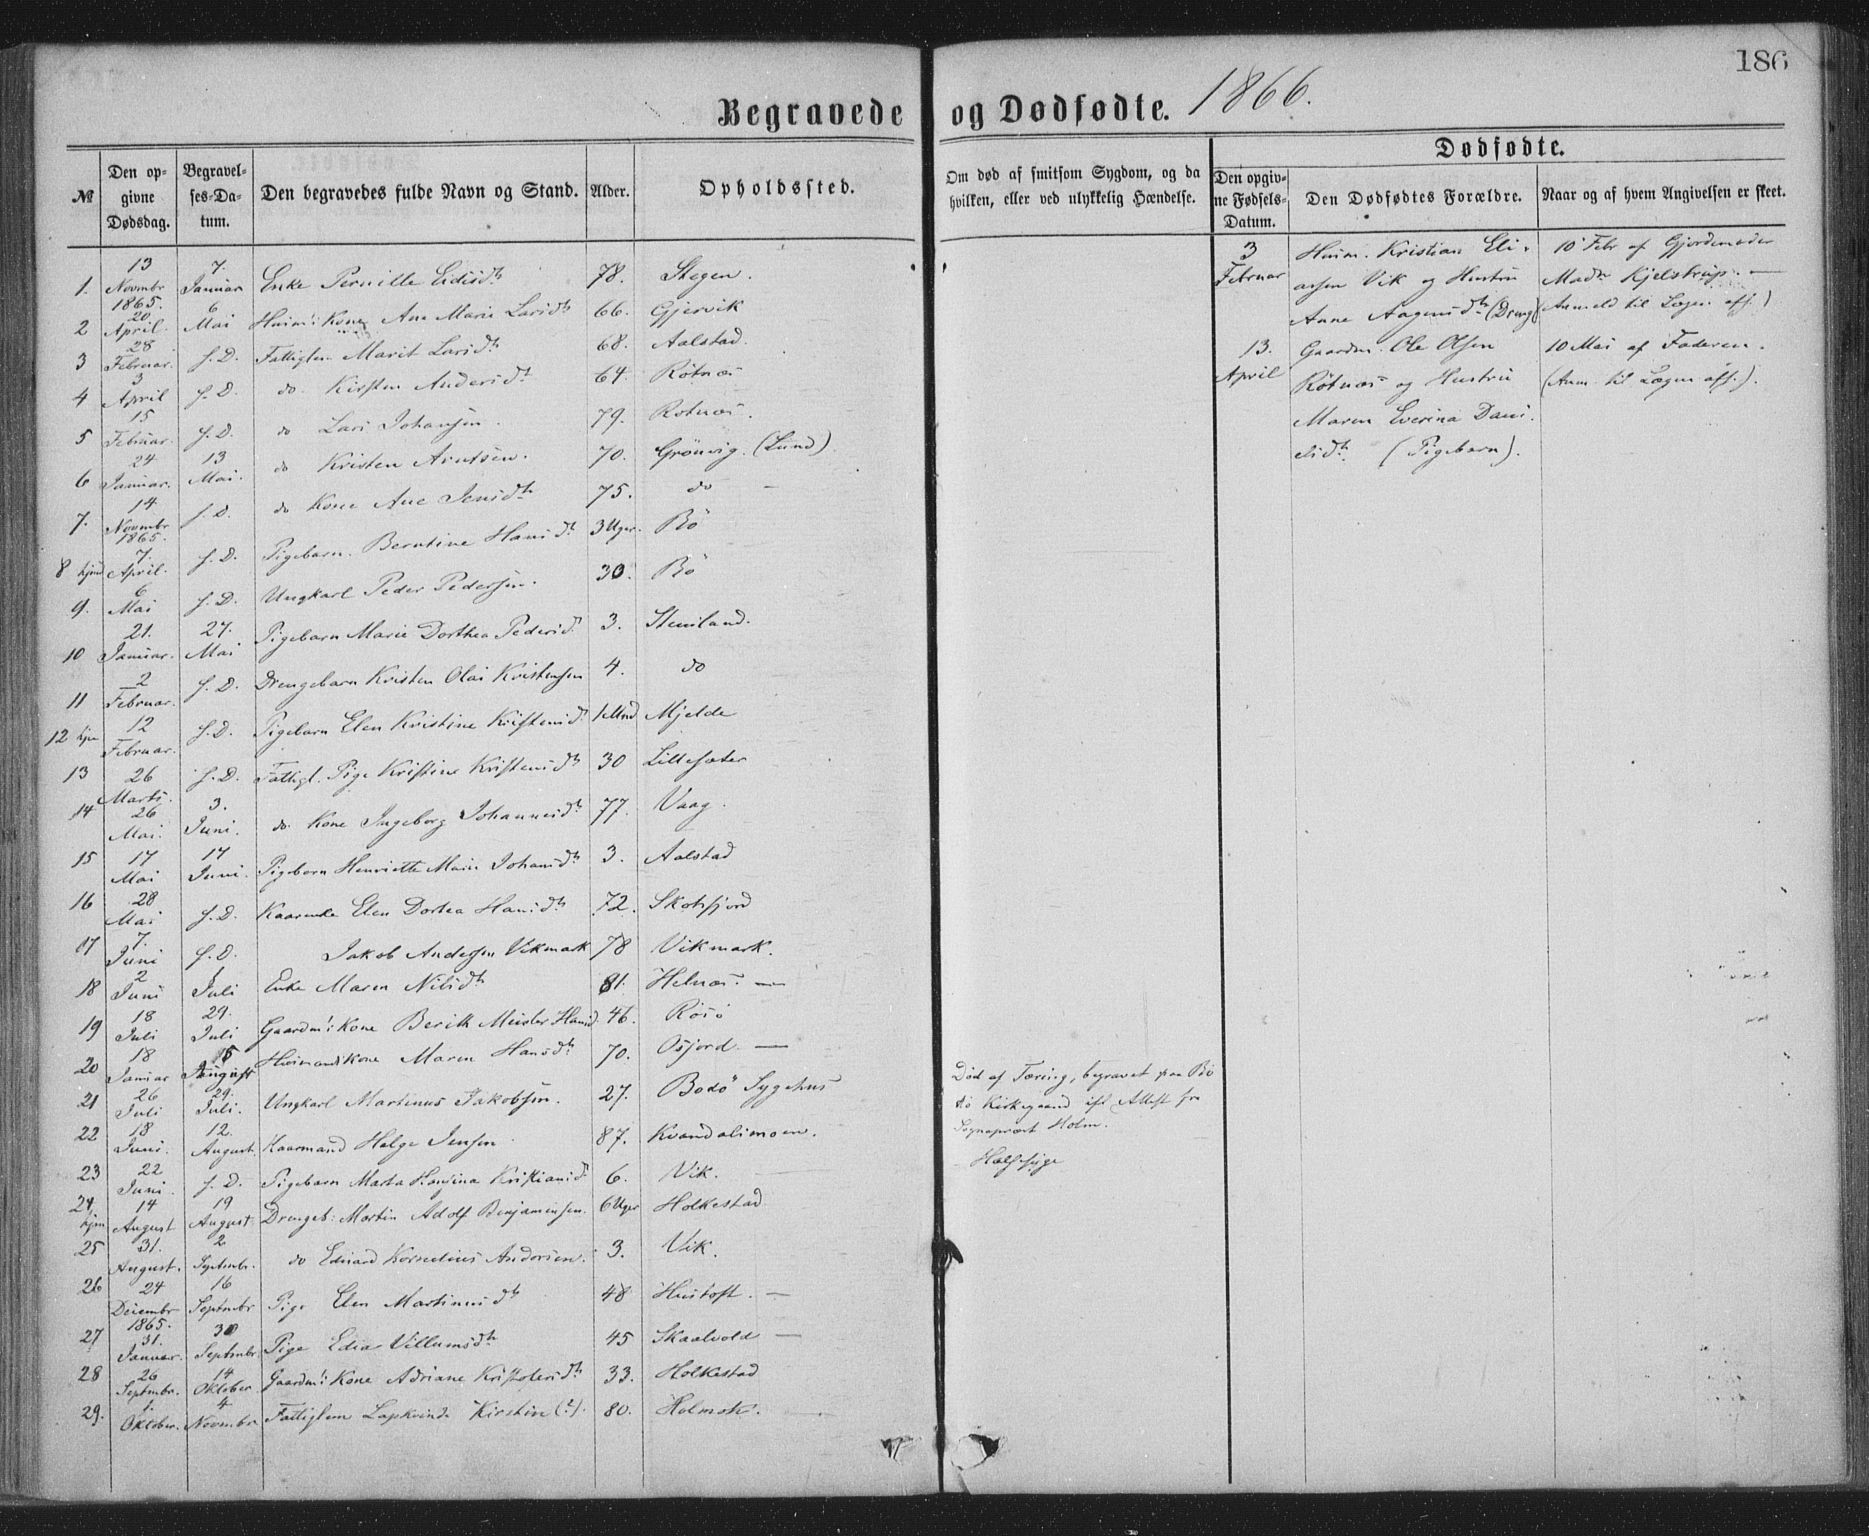 186
Begravede og Dødfødte. 1866.
Dødfødte.
№
Den opgivne Dødsdag.
Begravelses-Datum.
Den begravedes fulde Navn og Stand.
Alder.
Opholdssted.
Om død af smitsom Sygdom, og da hvilken, eller ved ulykkelig Hændelse.
Den opgivne Fødsels-Datum.
Den Dødfødtes Forældre.
Naar og af hvem Angivelsen er skeet.
1. 13 Novmbr 1865. 7. Januar Enke Pernille Eidisdt 78. Stegen.
2 20. April 6 Mai Huusm: Kone Ane Marie Larsdt 66. Gjervik
3 28 Februar. s. D. Fattiglem Marit Larsdt 68. Aalstad.
4 3 April s. D. do. Kirsten Andersdt 64. Røtnæs
5 15 Februar. s. D. do Lars Johansen. 79. Rotnæs.
6 24 Januar. 13 Mai. do Kristen Arntsen. 70. Grønvig. (Lund)
7. 14 Novmbr 1865. s. D. do Kone Ane Jensdt 75. do
8 hjmd 7. April. s. D. Pigebarn. Berntine Hansdt 3 Uger. Bö
9. 6 Mai s. D. Ungkarl Peder Pedersen. 30. Bö
10 21. Januar. 27. Mai Pigebarn Marie Dorthea Pedersd. 3. Stensland.
11 2 Februar. s. D. Drengebarn Kristen Olai Kristensen 4. do
12 hjm 12 Februar. s. D. Pigebarn Elen Kristine Kristensd. 1 Mnd Mjelde
13 26 Marts. s. D. Fattigl. Pige Kristine Kristensdt 30 Lillesæter
14 26 Mai. 3. Juni. do. Kone Ingeborg Johannesdt 77. Vaag.
15 17 Mai 17 Juni. Pigebarn Henriette Marie Johansdt 3. Aalstad
16 28 Mai s. D. Kaarenke Elen Dortea Hansdt 72. Skotsfjord
17 7. Juni s. D. Jakob Andersen Vikmark 78 Vikmark.
18 2 Juni Juli Enke Maren Nilsdt 81. Helnæs.
19 18 Juli 29. Juli Gaardm: Kone Berith Meisler Hansd. 46. Røsö
20 18 Januar 5 August Huusmandskone Maren Hansdt 70. Osfjord.
21 26 Juli 29. Juli. Ungkarl Martinus Jakobsen. 27. Bodö Sygehus
Död af Tæring, begravet paa Bo
dö Kirkegaard ifl. Attest fra
Sognepræst Holm.
22 18 Juni. 12. August. Kaarmand Helge Jensen. 87. Kvandalsmoen.
23 22 Juni. s. D. Pigebarn Marta Hansina Kristiansd. 6. Vik. Halssyge
24, hjm 14 August 19 August: Drengeb: Martin Adolf Benjaminsen. 6 Uger Holkestad
25 31. August. 2 Septmbr. do Edvard Kornelius Andersen. 3. Vik.
26 24 Decembr 1865. 16 Septmbr Pige Elen Martinusdt 48 Hustoft.
27 31. Januar. 30 Septmbr. Pige Edia Villumsdt 45 Skaalvold
28 26 Septmbr. 14 Oktober Gaardm: Kone Adriane Kristofersdt 33. Holkestad
29. 1. Oktober. 4 Novembr Fattiglem Lapkvinde Kirstin (?). 80. Holmok.
3 Februar
Huusm. Kristian Eli-
assen Vik og Hustru
Anne Aagensdt. (Dreng)
10 Febr af Gjordemoder
Madm Kjelstrup.
(Anmeld til Lægen aff.)
13. April
Gaardm. Ole Olsen
Røtnæs og Hustru
Maren Everina Dani-
elsdt. (Pigebarn).
10 Mai af Faderen.
(Anm. til Lægen aff.).